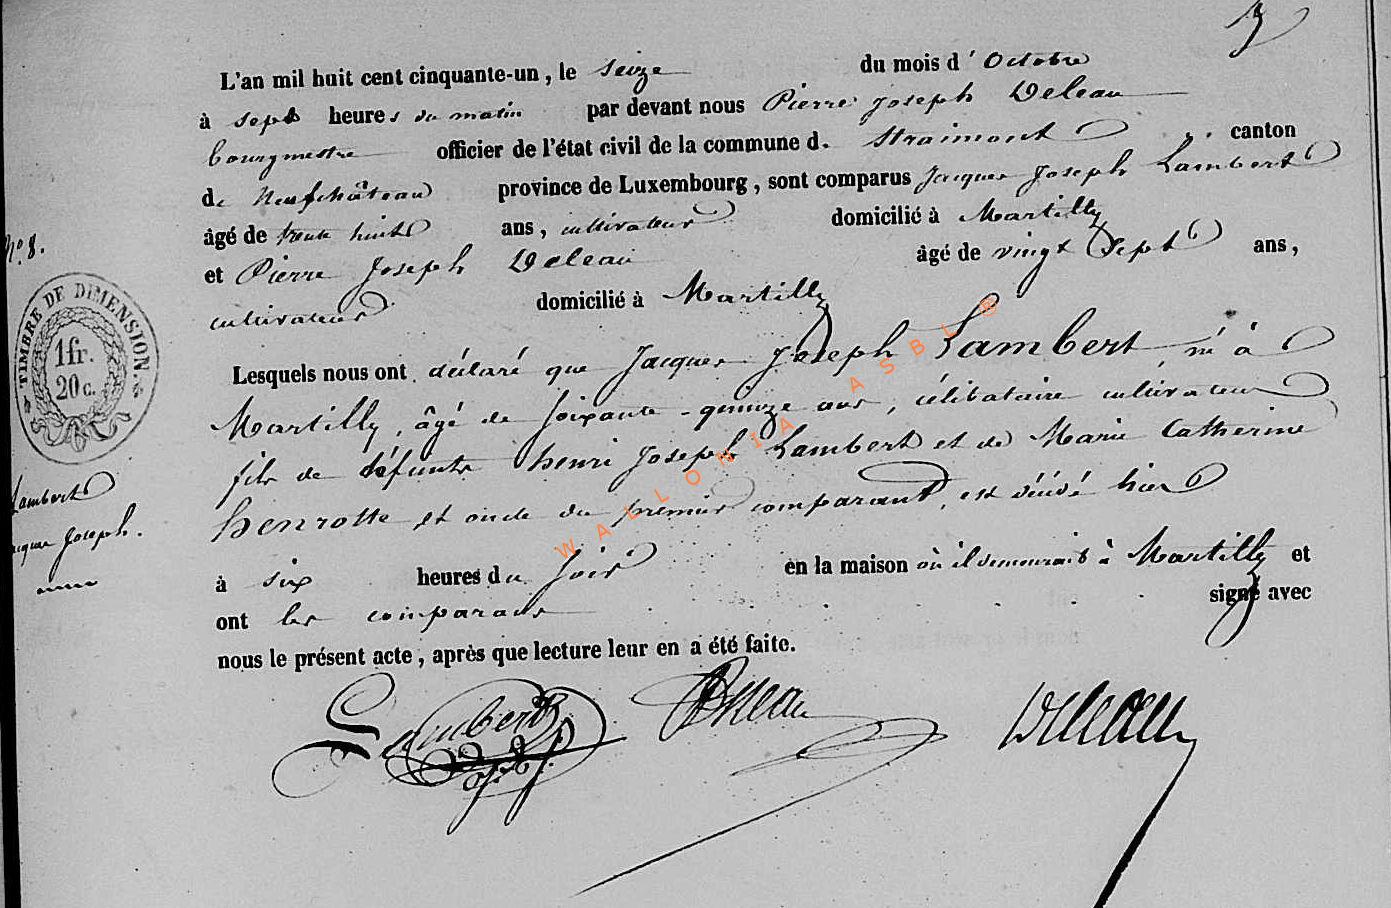 L'an mil huit cent cinquante-un, le seize du mois d'Octobre
à sept heures du matin par devant nous Pierre Joseph Deleau
bourgmestre officier de l'état civil de la commune d. Straimont canton
de Neufchâteau province de Luxembourg, sont comparus Jacques Joseph Lambert
âgé de trente huit ans, cultivateur domicilié à Martilly
et Pierre Joseph Deleau âgé de vingt sept ans,
cultivateur domicilié à Martilly
Lesquels nous ont déclaré que Jacques Joseph Lambert, né à
Martilly, âgé de soixante-quinze ans, célibataire cultivateur
fils de défunts henri Joseph Lambert et de Marie Catherine
henrotte et oncle du premier comparant, est décédé hier
à six heures du soir en la maison où il demeurait à Martilly et
ont les comparans signé avec
nous le présent acte, après que lecture leur en a été faite.
Lambert Deleau
N° 8.
TIMBRE DE DIMENSION.
1fr.
20 c.
Lambert
Jacques Joseph.
WALLONIA ASBL ®